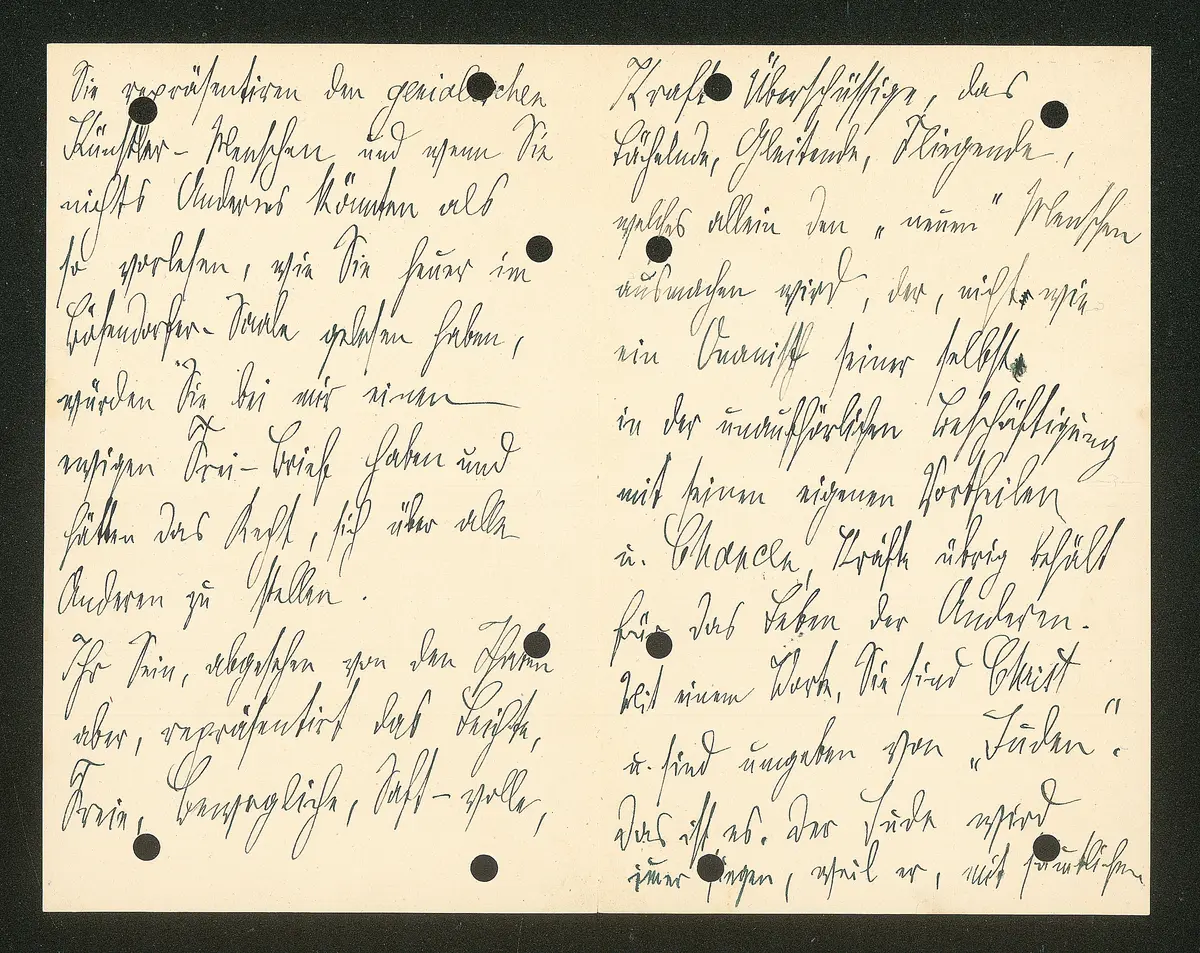 Sie repräsentiren den genialischen
Künstler-Menschen und wenn Sie
nichts Anderes könnten als
so vorlesen, wie Sie heuer im
Bösendorfer-Saale gelesen haben,
würden Sie bei mir einen
ewigen Frei-Brief haben und
hätten das Recht, sich über alle
Anderen zu stellen.
Ihr Sein, abgesehen von den Thaten
aber, repräsentirt das Leichte,
Freie, Bewegliche, Saft-volle,
Kraft Überschüssige, das
Lächelnde, Gleitende, Fliegende,
welches allein den „neuen" Menschen
ausmachen wird, der, nicht wie
ein Onanist seiner selbst
in der unaufhörlichen Beschäftigung
mit seinen eigenen Vortheilen
u. Chancen, Kräfte übrig behält
für das Leben der Anderen.
Mit einem Worte, Sie sind Christ
u. sind umgeben von „Juden".
Das ist es. Der Jude wird
imer siegen, weil er, mit sämtlichen